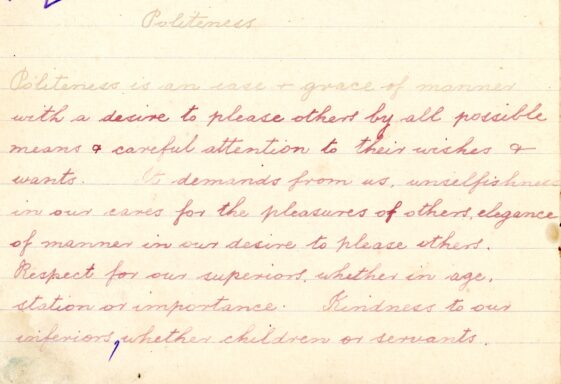 Politeness
Politeness is an ease + grace of manner
with a desire to please others by all possible
means & careful attention to their wishes &
wants. It demands from us, unselfishness
in our cares for the pleasures of others, elegance
of manner in our desire to please others.
Respect for our superiors, whether in age,
station or importance. Kindness to our
inferiors, whether children or servants.